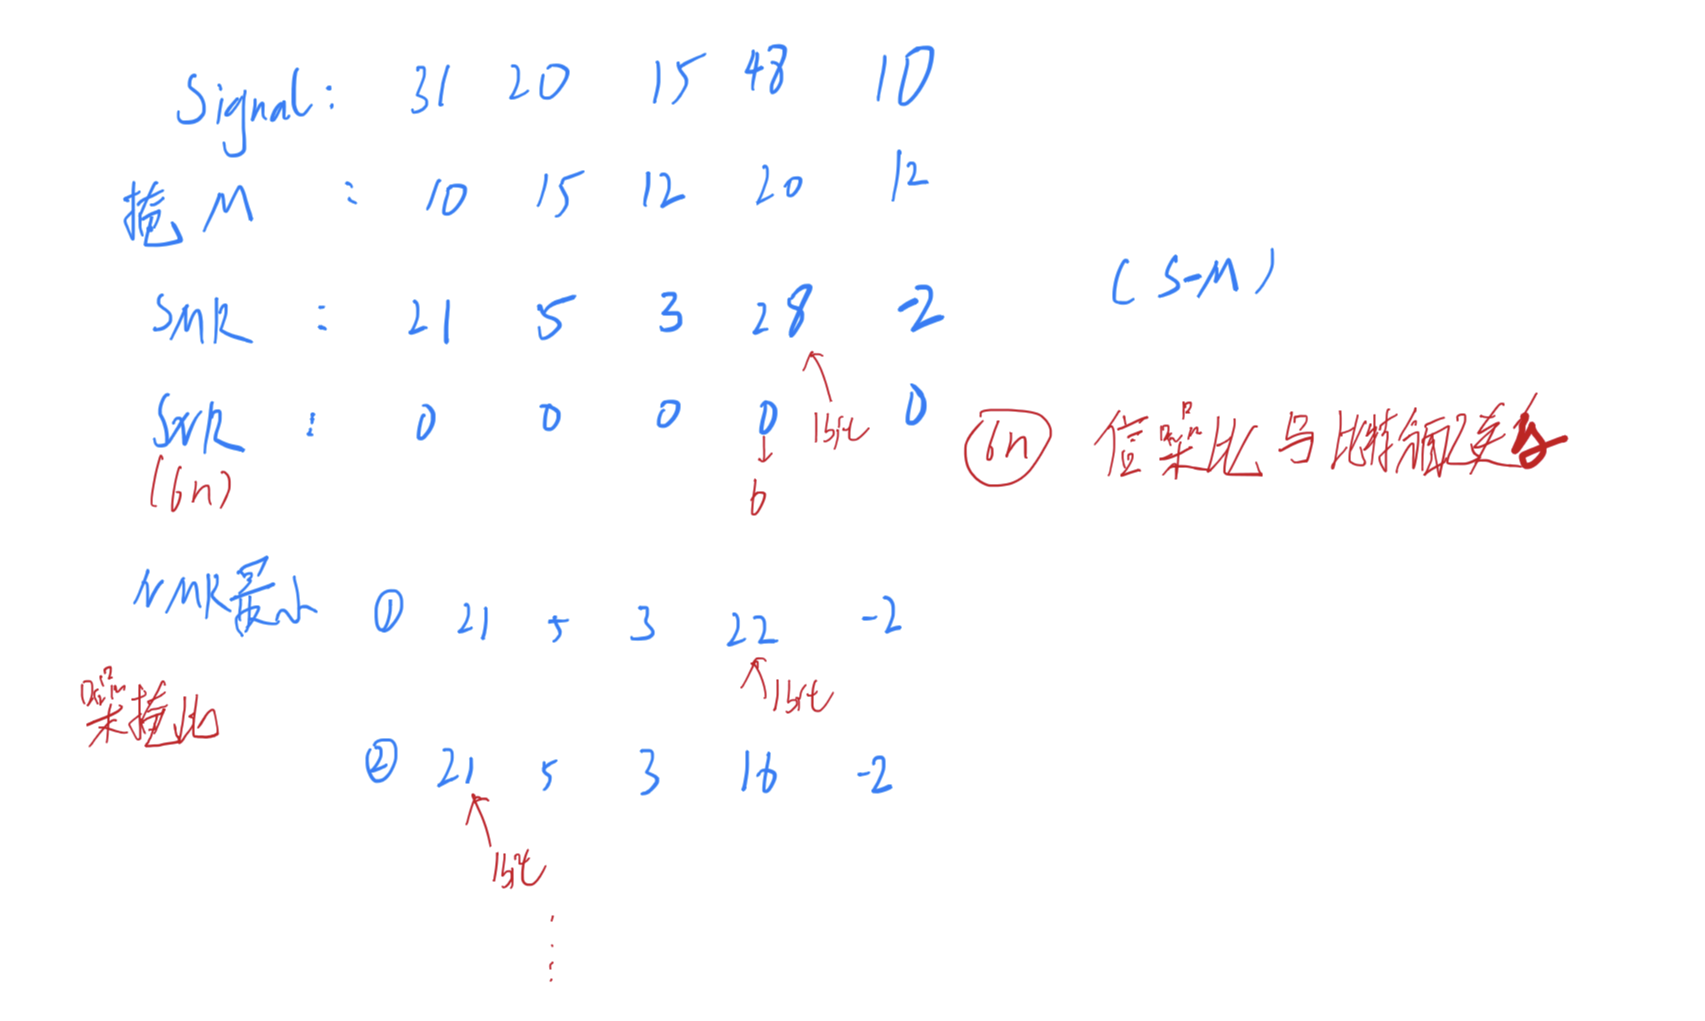 Signal: 31 20 15 48 10
掩M : 10 15 12 20 12
SMR : 21 5 3 28 -2 (S-M)
SNR : 0 0 0 0 0
1bit
(6n)
6
6n 信噪比与比特
NMR最小 ① 21 5 3 22 -2
1bit
噪掩比
② 21 5 3 16 -2
1bit
⋮